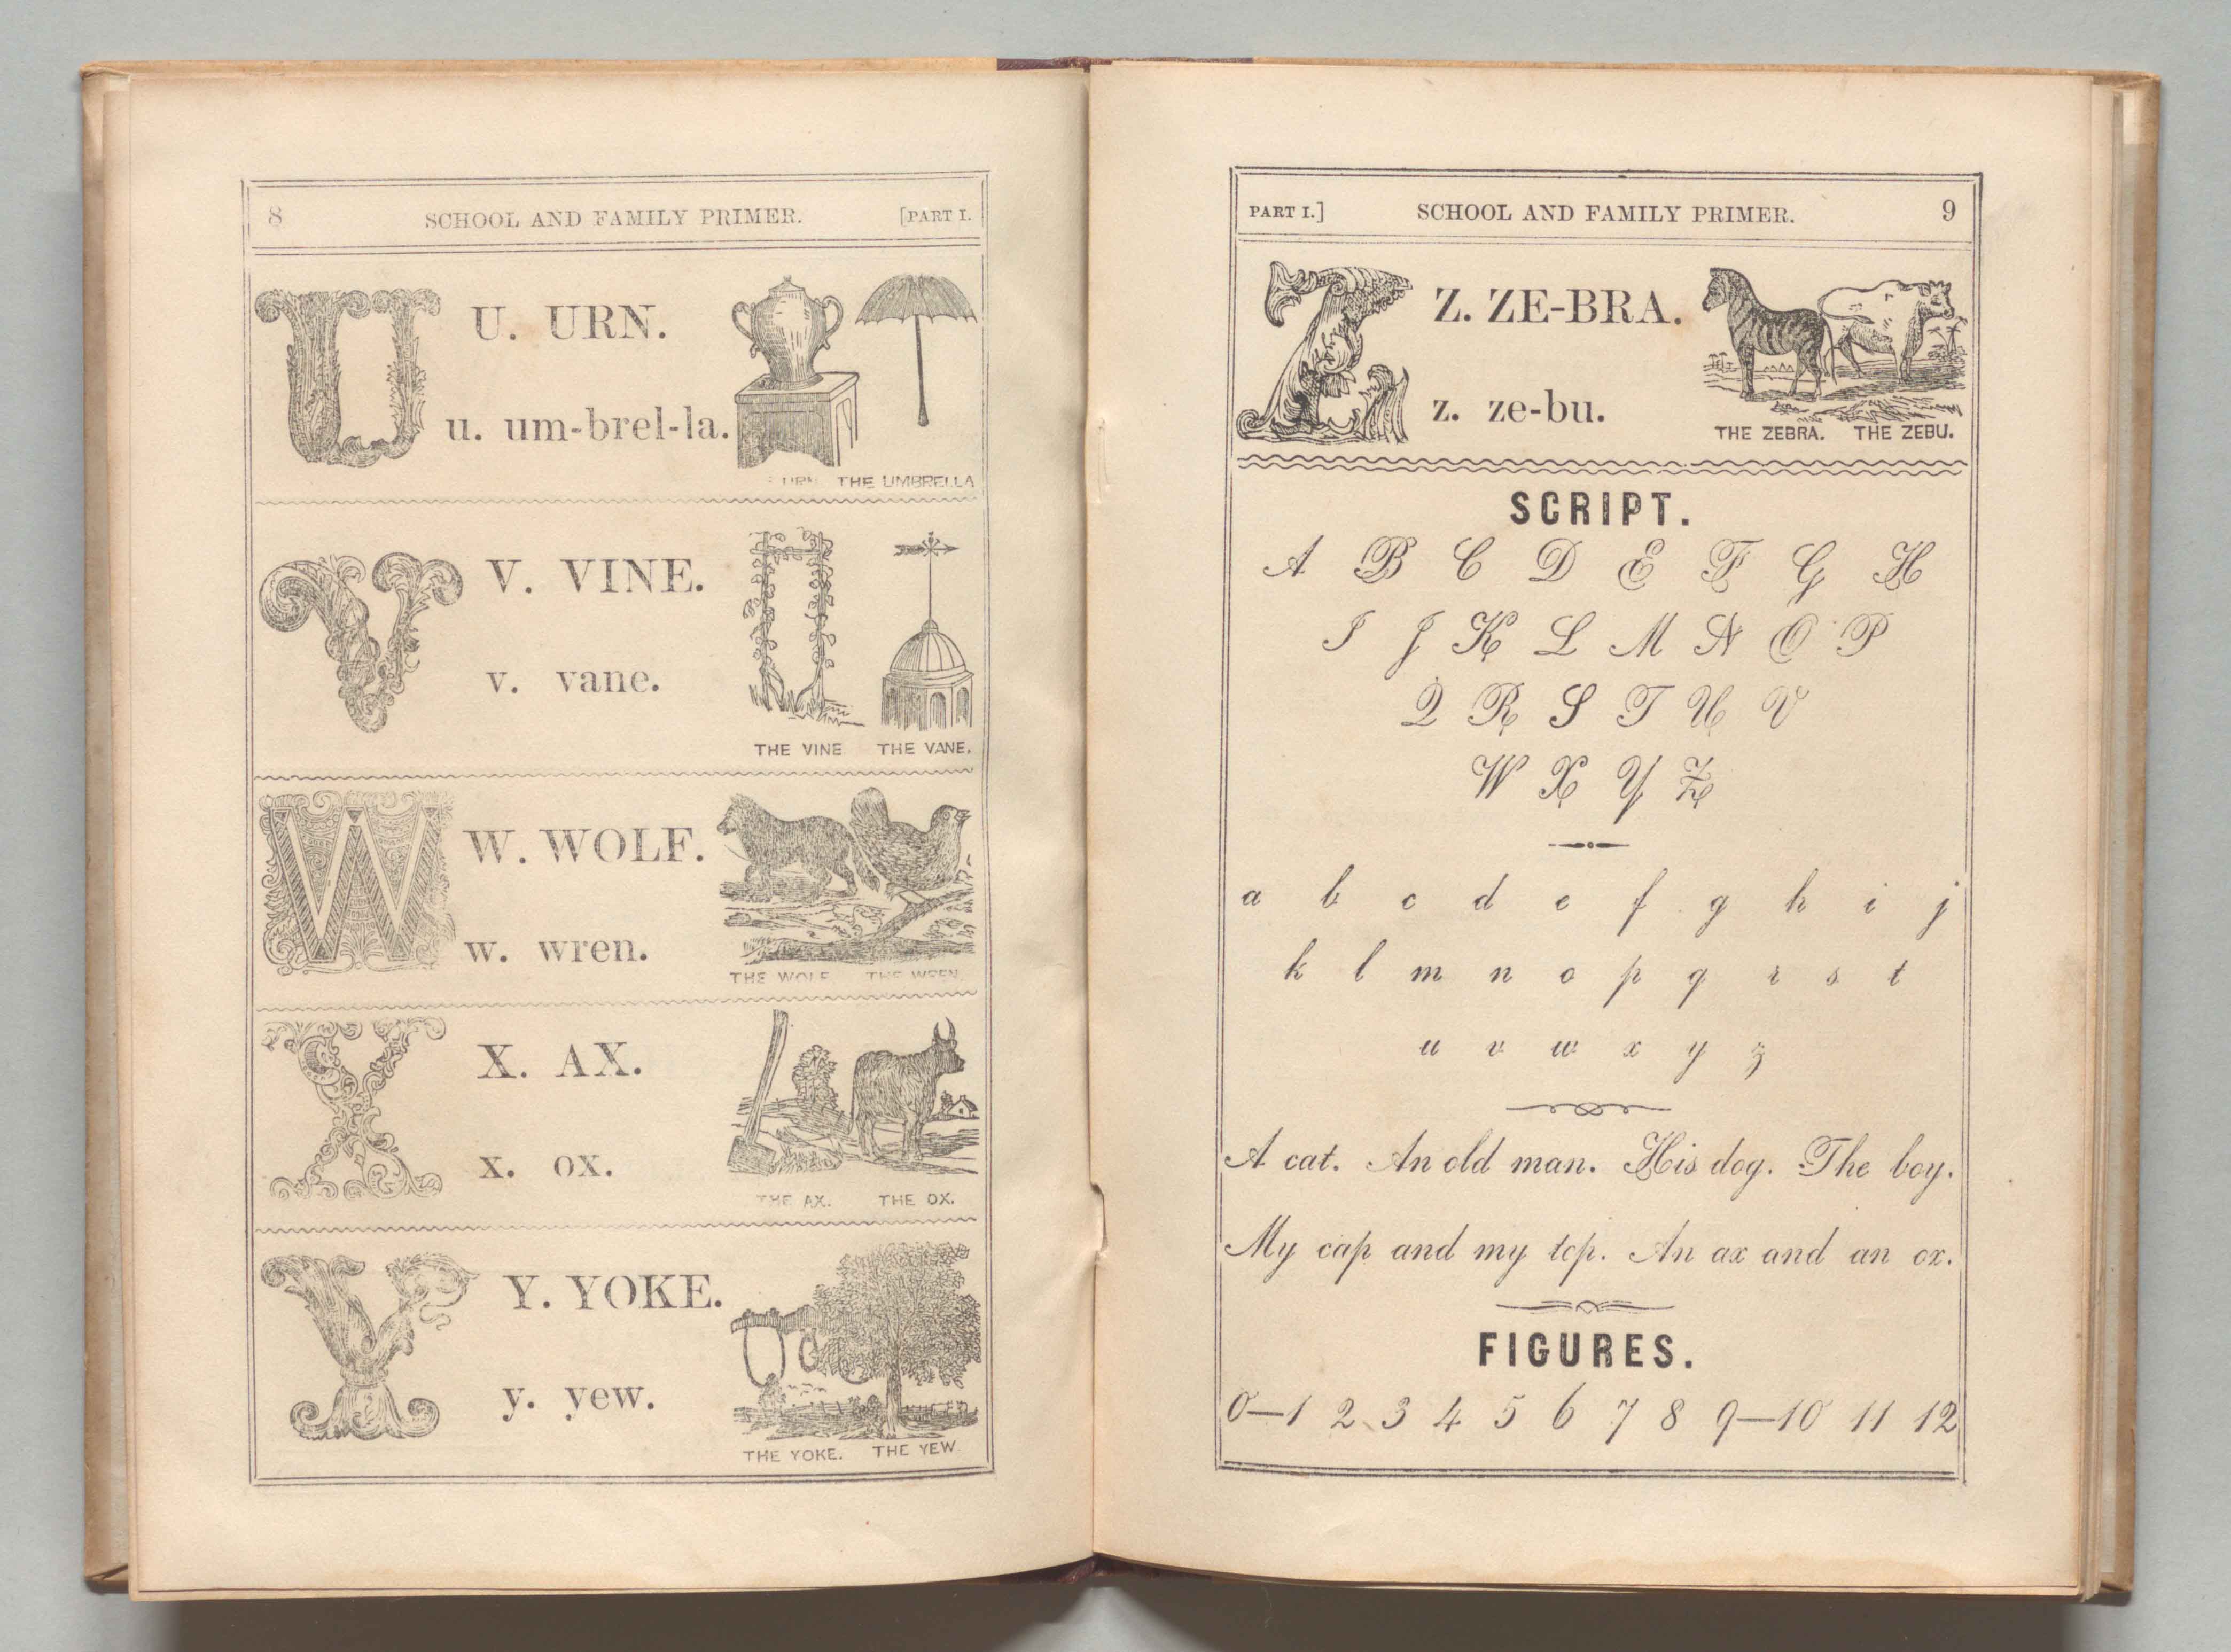 8 SCHOOL AND FAMILY PRIMER. [PART I.
U. URN.
u. um-brel-la.
URN THE UMBRELLA
V. VINE.
v. vane.
THE VINE THE VANE.
W. WOLF.
w. wren.
THE WOLF THE WREN.
X. AX.
x. ox.
THE AX. THE OX.
Y. YOKE.
y. yew.
THE YOKE. THE YEW
PART I.] SCHOOL AND FAMILY PRIMER. 9
Z. ZE-BRA.
z. ze-bu.
THE ZEBRA. THE ZEBU.
SCRIPT.
A B C D E F G H
I J K L M N O P
Q R S T U V
W X Y Z
a b c d e f g h i j
k l m n o p q r s t
u v w x y z
A cat. An old man. His dog. The boy.
My cap and my top. An ax and an ox.
FIGURES.
0—1 2 3 4 5 6 7 8 9—10 11 12